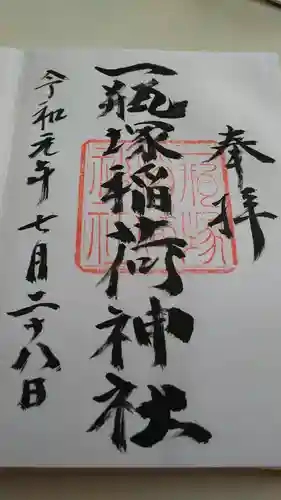 奉拝
一瓶塚稲荷神社
令和元年七月二十八日